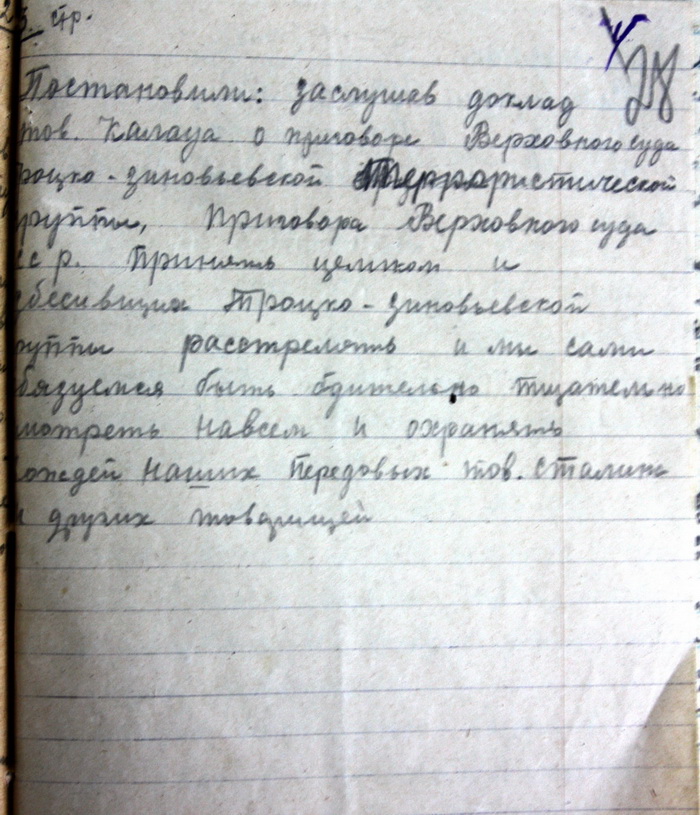 5. стр.
28
Постановили: заслушав доклад
тов. Калауа о приговоре Верховного суда
роцко-зиновьевской террористической
руппы, Приговора Верховного суда
сс р. принять целиком и
збесивщих Троцко-зиновьевской
руппы расстрелять и ми сами
бязуемся быть бдительно тщательно
мотреть навсем и охранять
ождей наших передовых тов. Сталина
и других товарищей